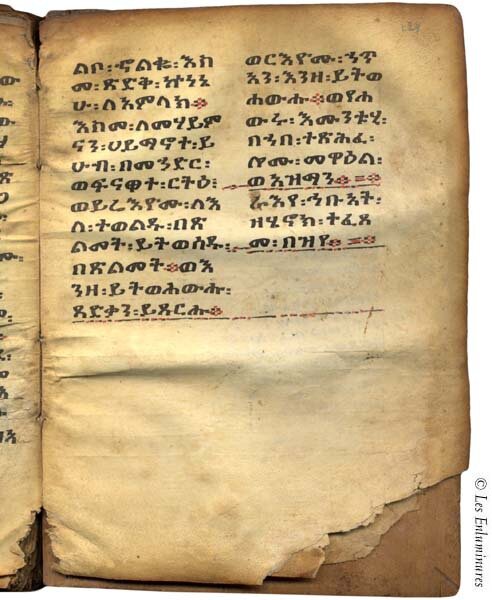 ልቦ፡ኆልቈ፡እስ
መ፡ጽድቅ፡ኵነኔ
ሁ፡ለአምላክ።
እስመ፡ለመሃይም
ናን፡ሃይማኖተ፡ይ
ሁብ፡በመኅደር፡
ወፍናዋተ፡ርትዕ፡
ወይሬእዮሙ፡ለእ
ለ፡ተወልዱ፡በጽ
ልመት፡ይትወሰዱ፡
በጽልመት።ወእ
ንዘ፡ይትወሐውሑ፡
ጻድቃን፡ይጸርሑ።
ወርእዮሙ፡ኃጥ
አን፡እንዘ፡ይትወ
ሐውሑ።ወየሐ
ውሩ፡እሙንቱሂ፡
በኀበ፡ተጽሕፈ፡
ሎሙ፡መዋዕል፡
ወአዝማን።
ራእየ፡ኅቡአት፡
ዘሄኖክ፡ተፈጸ
መ፡በዝየ።
© Les Enluminures